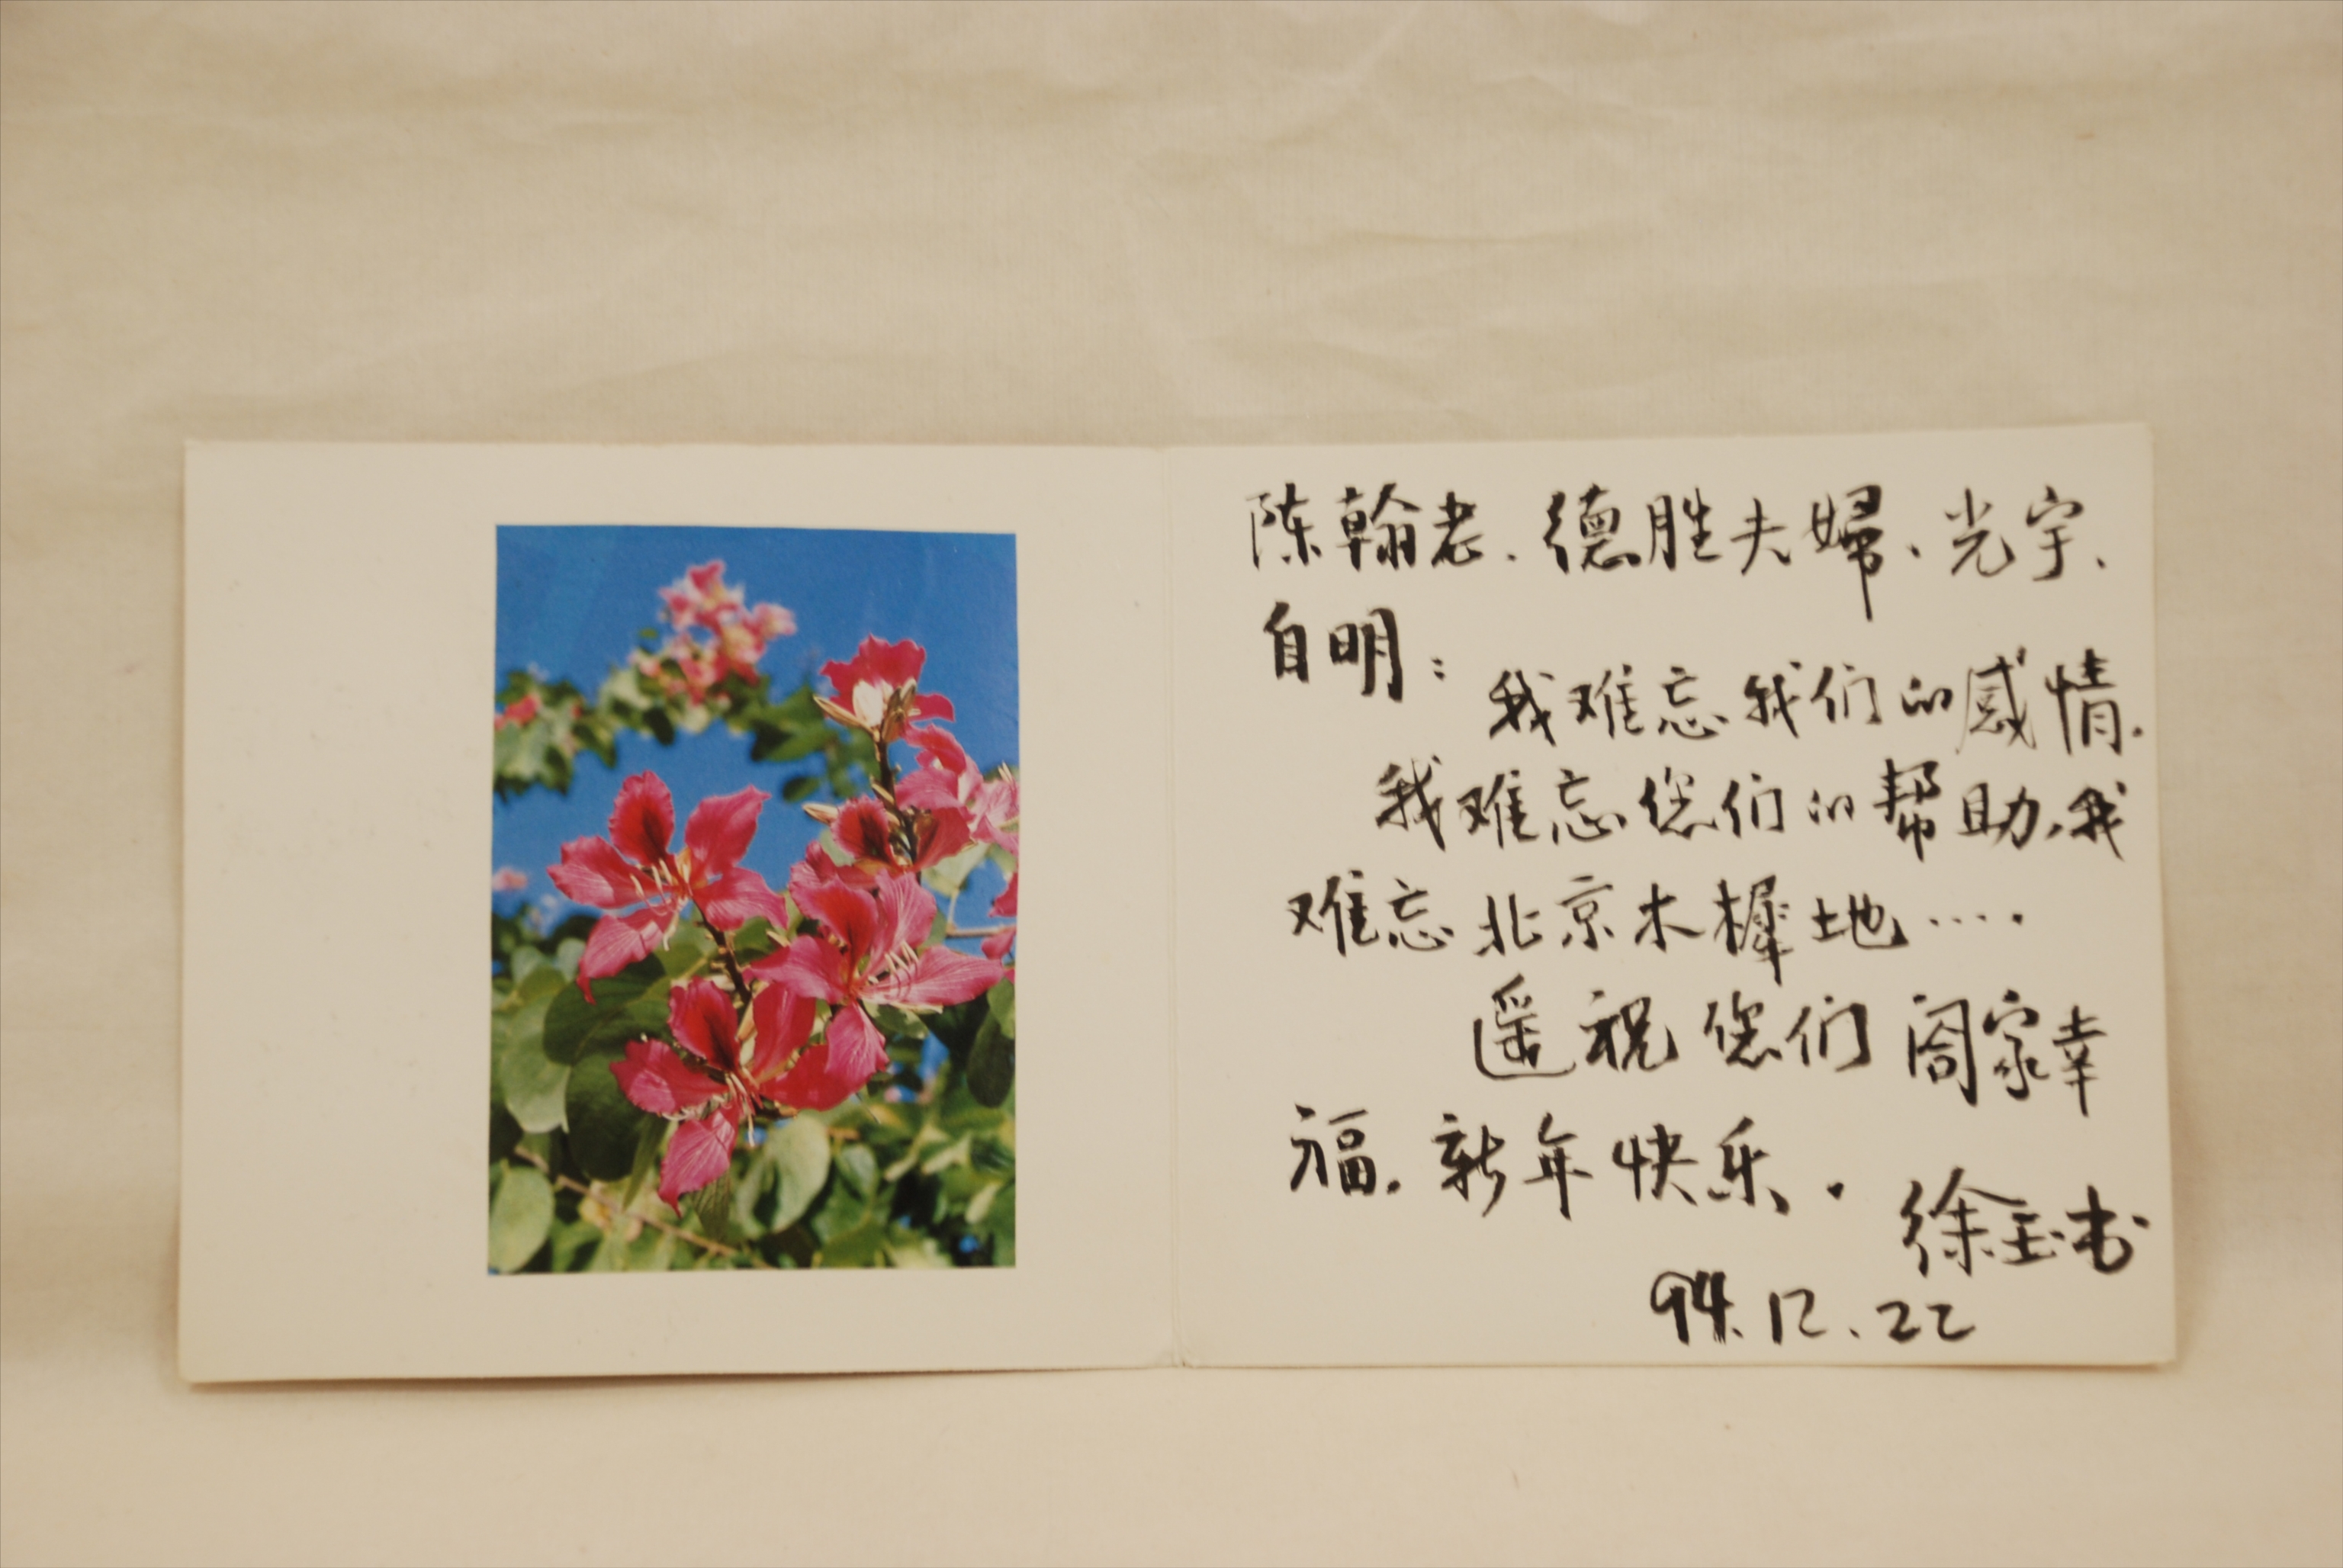 陈翰老、德胜夫婦、光宇、
自明：
我难忘我们的感情.
我难忘您们的帮助,我
难忘北京木樨地····
遥祝您们阁家幸
福.新年快乐.
徐玉书
94.12.22